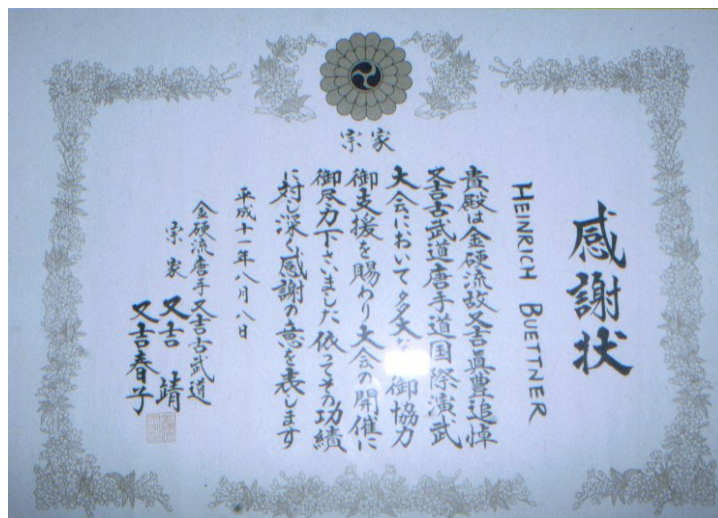 宗家
感謝状
HEINRICH BUETTNER
貴殿は金硬流故又吉眞豊追悼
又吉古武道唐手道国際演武
大会において多大な御協力
御支援を賜わり大会の開催に
御尽力下さいました依ってその功績
に対し深く感謝の意を表します
平成十一年八月八日
金硬流唐手又吉古武道
宗家 又吉 靖
又吉春子